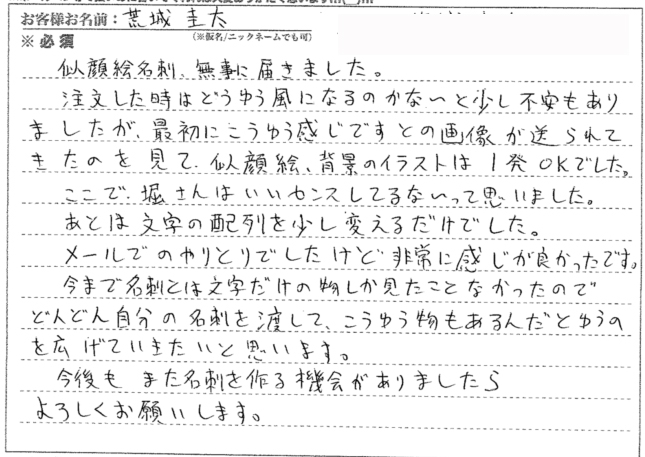 お客様お名前：荒城 圭太
※必須 （※仮名/ニックネームでも可）
似顔絵名刺、無事に届きました。
注文した時はどうゆう風になるのかな〜と少し不安もあり
ましたが、最初にこうゆう感じですとの画像が送られて
きたのを見て、似顔絵、背景のイラストは1発OKでした。
ここで、堀さんはいいセンスしてるな〜って思いました。
あとは文字の配列を少し変えるだけでした。
メールでのやりとりでしたけど非常に感じが良かったです。
今まで名刺とは文字だけの物しか見たことなかったので
どんどん自分の名刺を渡して、こうゆう物もあるんだとゆうの
を広げていきたいと思います。
今後もまた名刺を作る機会がありましたら
よろしくお願いします。